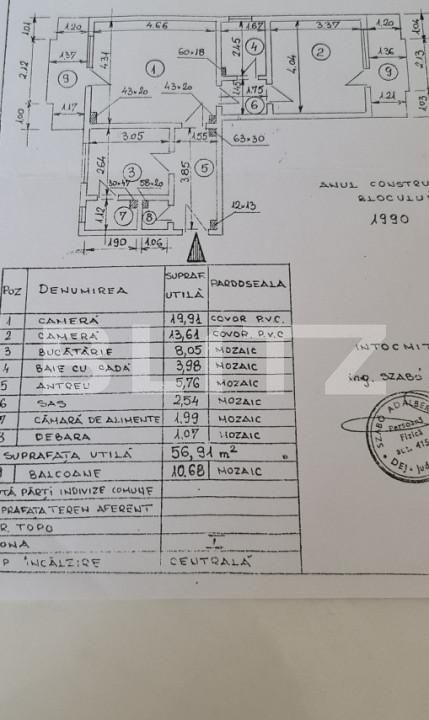 1.01
1.20
4.66
1.67
3.37
1.20
1.04
2.12
1.37
4.31
60×18
2.45
4
2
4.04
1.36
2.13
9
1
9
43×20
43×20
1.45
1.75
6
1.00
1.17
1.21
1.03
3.05
1.55
63×30
2.64
3
3.85
5
30×47
58×20
1.12
7
8
12×13
1.90
1.06
ANUL CONSTRU
BLOCULU
1990
POZ DENUMIREA SUPRAF. UTILĂ PARDOSEALĂ
1 CAMERĂ 19,91 COVOR P.V.C.
2 CAMERĂ 13,61 COVOR P.V.C
3 BUCĂTĂRIE 8,05 MOZAIC
4 BAIE CU CADĂ 3,98 MOZAIC
5 ANTREU 5,76 MOZAIC
6 SAS 2,54 MOZAIC
7 CĂMARĂ DE ALIMENTE 1,99 MOZAIC
8 DEBARA 1,07 MOZAIC
SUPRAFAȚA UTILĂ 56,91 m²
9 BALCOANE 10,68 MOZAIC
TĂ PĂRȚI INDIVIZE COMUNE
PRAFATA TEREN AFERENT
R. TOPO
ONA I
P ÎNCĂLZIRE CENTRALĂ
BLITZ
INTOCMIT
ing. SZABÓ
SZABÓ ADALBE
Persoană
Fizică
aut. 415
DEJ - Jud